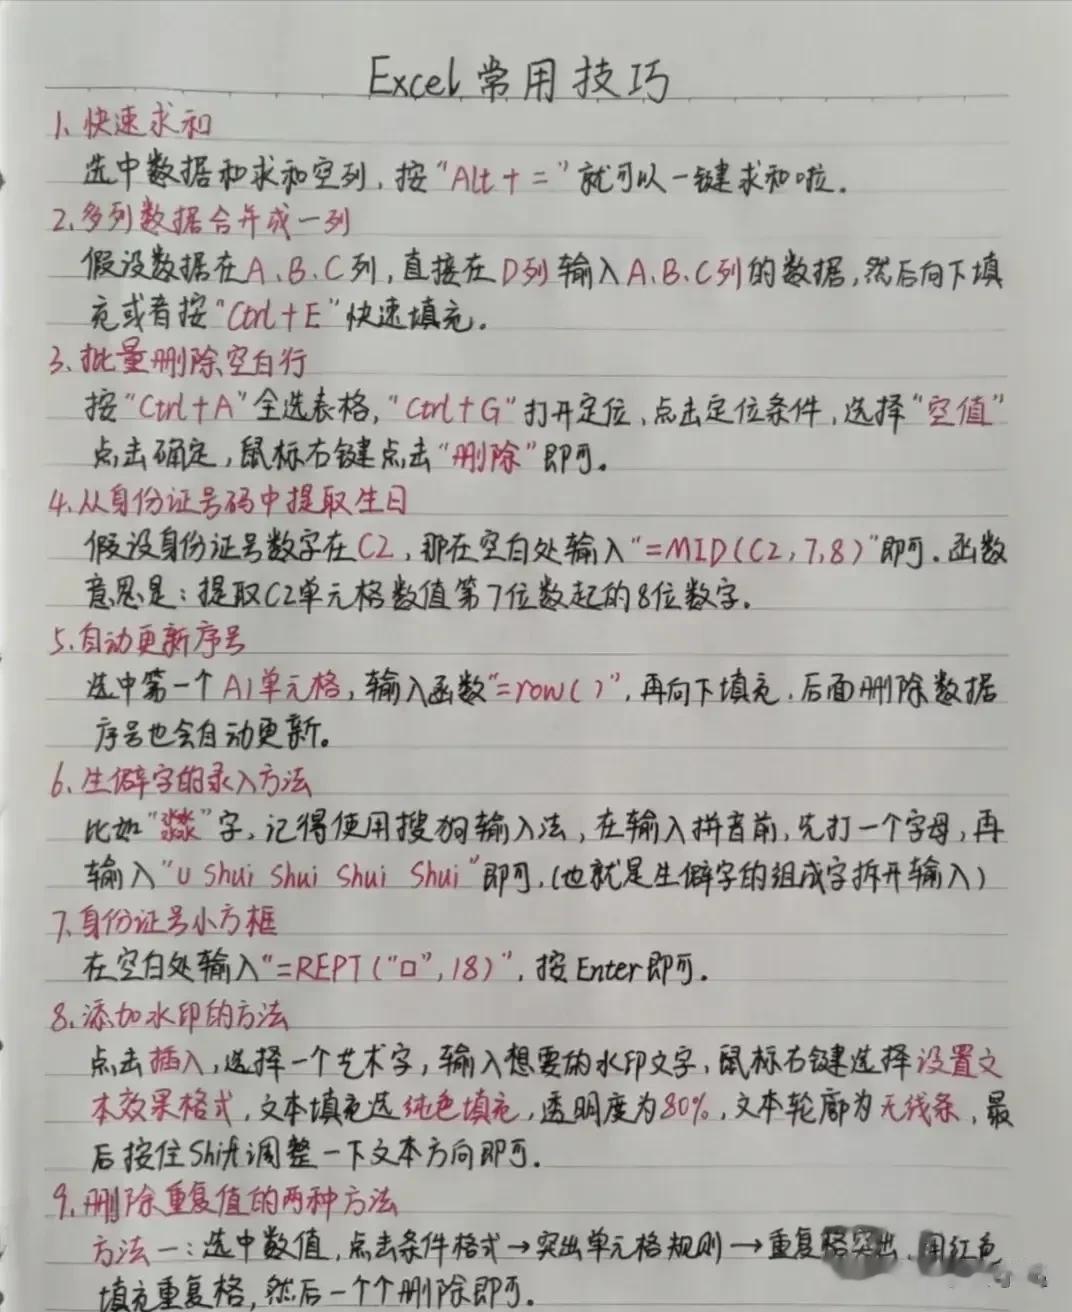 Excel常用技巧
1、快速求和
选中数据和求和空列，按“Alt＋＝”就可以一键求和啦。
2、多列数据合并成一列
假设数据在A、B、C列，直接在D列输入A、B、C列的数据，然后向下填
充或者按“Ctrl＋E”快速填充。
3、批量删除空白行
按“Ctrl＋A”全选表格，“Ctrl＋G”打开定位、点击定位条件，选择“空值”
点击确定，鼠标右键点击“删除”即可。
4、从身份证号码中提取生日
假设身份证号数字在C2，那在空白处输入“=MID(C2,7,8)”即可。函数
意思是：提取C2单元格数值第7位数起的8位数字。
5、自动更新序号
选中第一个A1单元格，输入函数“=row()”，再向下填充，后面删除数据
序号也会自动更新。
6、生僻字的录入方法
比如“㵘”字，记得使用搜狗输入法，在输入拼音前，先打一个字母，再
输入“U Shui Shui Shui Shui”即可，(也就是生僻字的组成字拆开输入)
7、身份证号小方框
在空白处输入“=REPT("口",18)”，按Enter即可。
8、添加水印的方法
点击插入，选择一个艺术字，输入想要的水印文字，鼠标右键选择设置文
本效果格式，文本填充选纯色填充，透明度为80%，文本轮廓为无线条，最
后按住Shift调整一下文本方向即可。
9、删除重复值的两种方法
方法一：选中数值，点击条件格式→突出单元格规则→重复格突出，用红色
填充重复格，然后一个个删除即可。